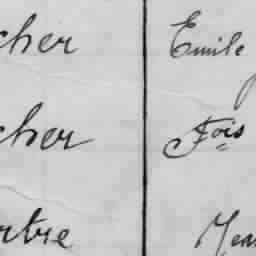 cher Emile
cher Fois
rtre